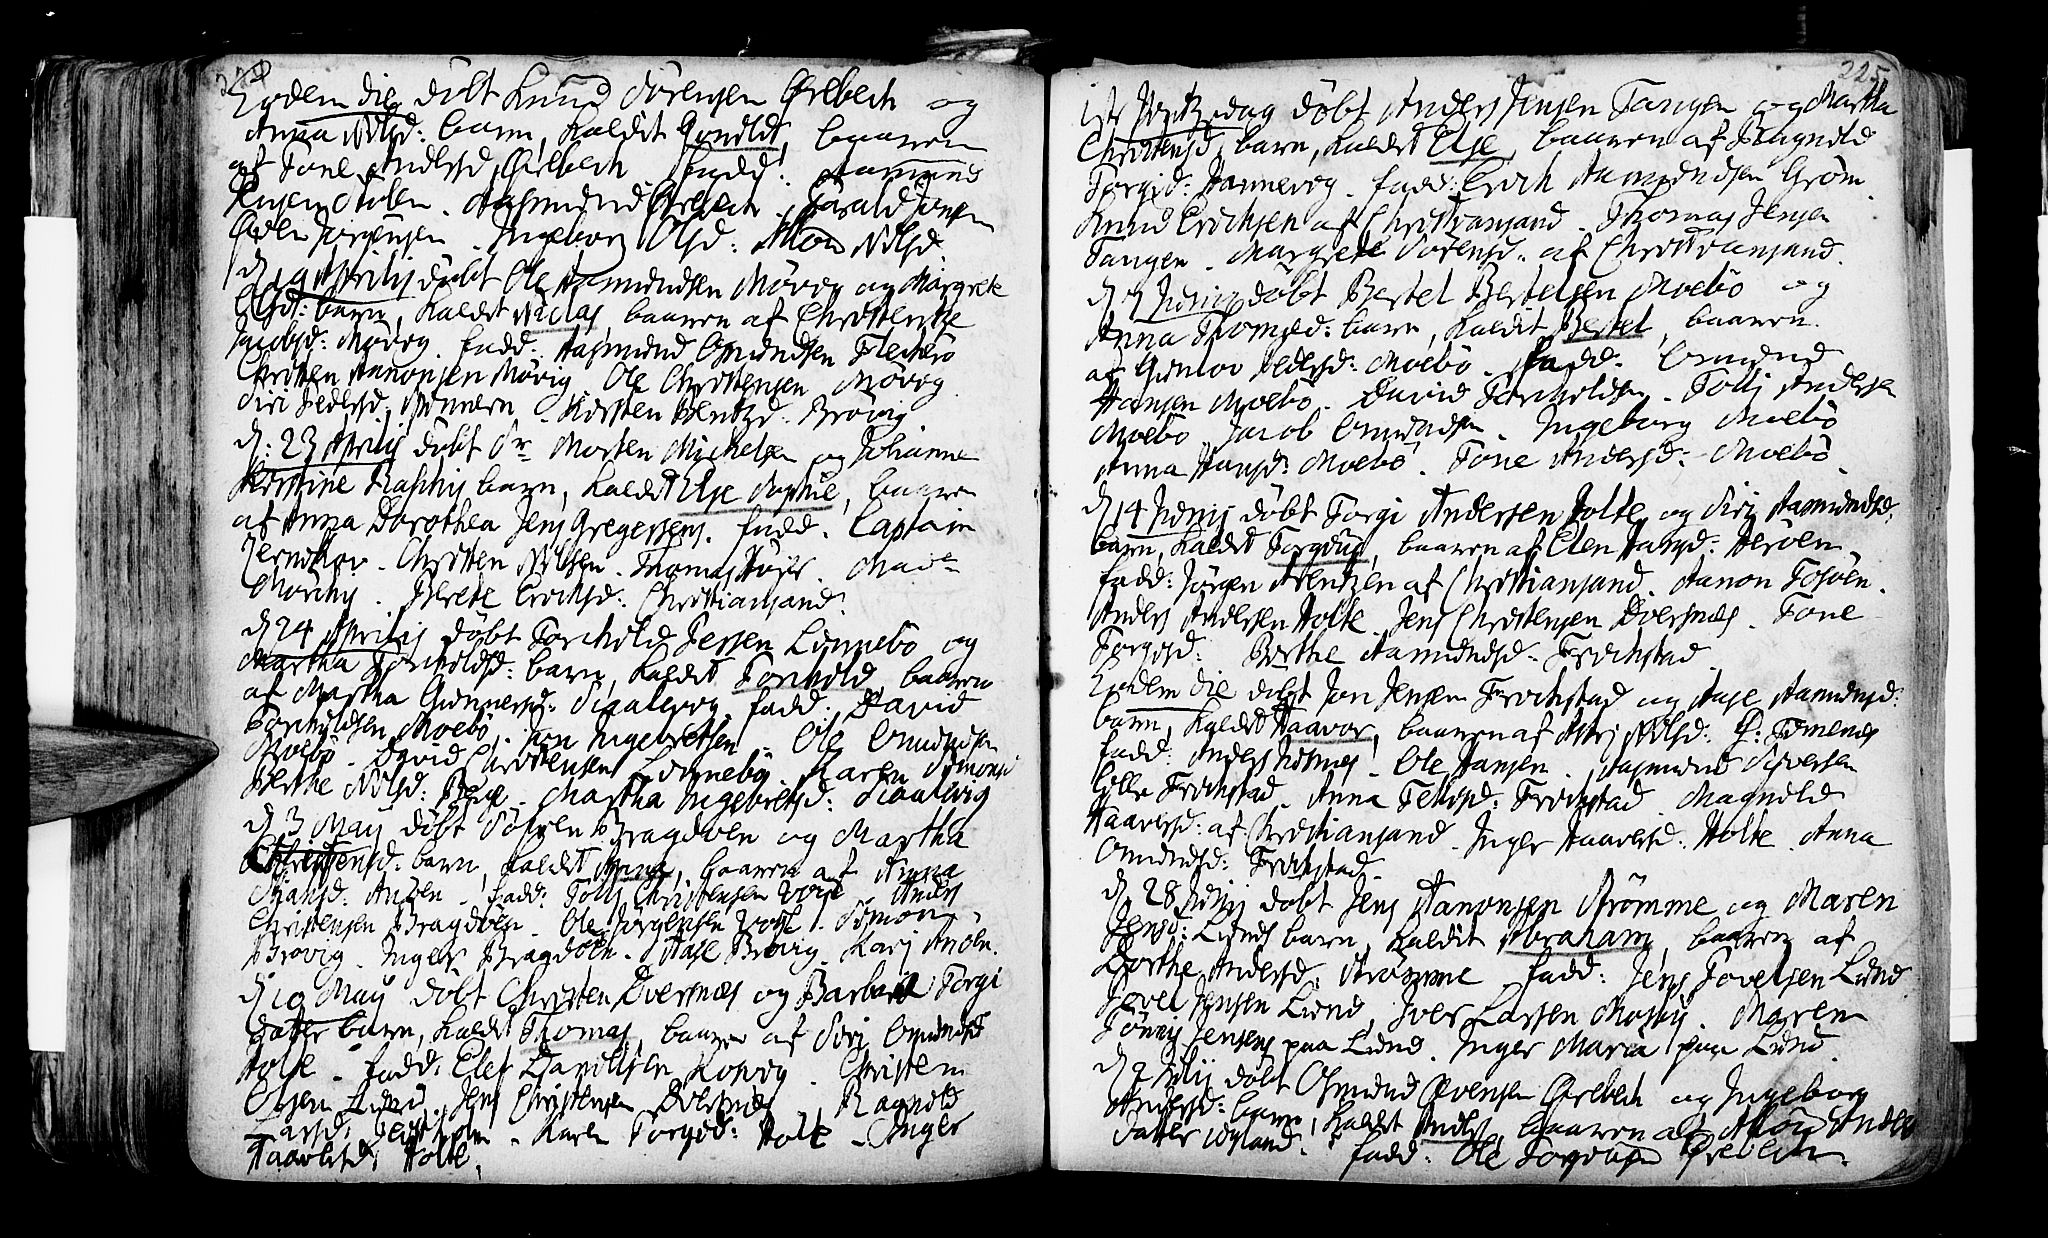 224
Eodem die döbt Knud Sörensen Ørebech og
Anna Nilsd: barn, kaldet Gunild, baaren
af Tone Andersd Ørebech. fadd: Aamund
Aasmund Ørebech. Harald Jensen
Ingeborg Olsd: Nilsd:
d 19 Aprilis döbt Ole Aamundsen Mövog og Margrete
Olsd: barn, kaldet Niclas, baaren af Christense
Jacobsd: Mövog. fadd: Aasmund Osmundsen Flecherö
Christen Aanonsen Mövig. Ole Christensen Mövog.
Siri Pedersd. Kirsten Bentzd. Brövig
d: 23 Aprilis döbt Sr Morten Michelsen og Johanne
Kirstine barn, kaldet Else Sophie, baaren
af Anna Dorothea Jens Gregersens. fadd. Captain
Christen Nilsen. Thomas Höyer. Made
Berete Erichsd: Christiansand.
d 24 Aprilis döbt Torchild Jessen Linnebö og
Martha Torchildsd: barn, kaldet Torchild, baaren
af Martha Gunnersd: fadd: David
Torchildsen Moebö. Jon Ingebretsen. Ole Omundsen
Moebö. David Christensen Linnebö. Maren Simonsd
Berthe Nilsd: Berge. Martha Ingebretsd:
d 3 May döbt Sören Bragdöen og Martha
Christensd: barn, kaldet Anna, baaren af Anna
Hansd: fadd: Tolli Christensen Voje. Anders
Christensen Bragdöen. Ole Jörgensen Voje. Simon
Brövig. Inger Bragdöen. Aase Brövig. Karj
d 10 May döbt Christen Dversnæs og Barbara Torgi
datter barn, kaldet Thomas, baaren af Siri Omundsd
Holte. fadd: Elef Davidsen Kosvog. Christen
Olsen Lund. Jens Christensen Dversnæs. Ragnild
Larsd: Karen Torgid: Holte. Inger
Haavorsd: Holte.
225
1ste Pintzedag döbt Anders Jensen Tangen og Martha
Christensd, barn, kaldet Else, baaren af Magnild
Torgid: Hannevog. fadd: Erich Aamundsen Gröm.
Knud Erichsen af Christiansand. Thomas Jensen
Tangen. Margrete Sörensd: af Christiansand.
d 7 Junij döbt Bertel Bertelsen Moebö og
Anna Thomsd: barn, kaldet Bertel, baaren
af Gunlov Pedersd: Moebö. fadd. Omund
Hansen Moebö. David Torchildsen. Tolli Andersen
Moebö. Jacob Omundsen. Ingeborg Moebö
Anna Hansd: Moebö. Tone Andersd: Moebö.
d 14 Junij döbt Torgi Andersen Holte og Siri Aamundsd:
barn, kaldet, baaren af Elen Hansd: Heröen.
fadd: Jörgen Arentzen af Christiansand. Aanon Fosöen.
Anders Andersen Holte. Jens Christensen Dversnæs. Tone
Torgisd: Berthe Aamundsd: Frichstad
Eodem die döbt Jon Jensen Frichstad og Aase Aamundsd:
barn, kaldet Haavor, baaren af Astri Nilsd:
fadd: Anders. Ole Hansen. Aasmund Sivertsen
Frichstad. Anna Tellefsd: Frichstad. Magnild
Haavorsd: af Christiansand. Inger Haavorsd: Holte. Anna
Omundsd: Frichstad.
d 28 Junij döbt Jens Aanonsen Strömme og Maren
Jensd: Lunds barn, kaldet Abraham, baaren af
Dorthe Andersd: Strömme. fadd: Jens Tovelsen Lund
Tovel Jensen Lund, Iver Larsen Mosby. Maren
Tönnis Jensens paa Lund. Inger Maria paa Lund.
d 2 Julij döbt Osmund Evensen Ørebech og Ingeborg
Andersd: barn, kaldet Anders, baaren af Anders
datter. fadd: Ole Ørebech.